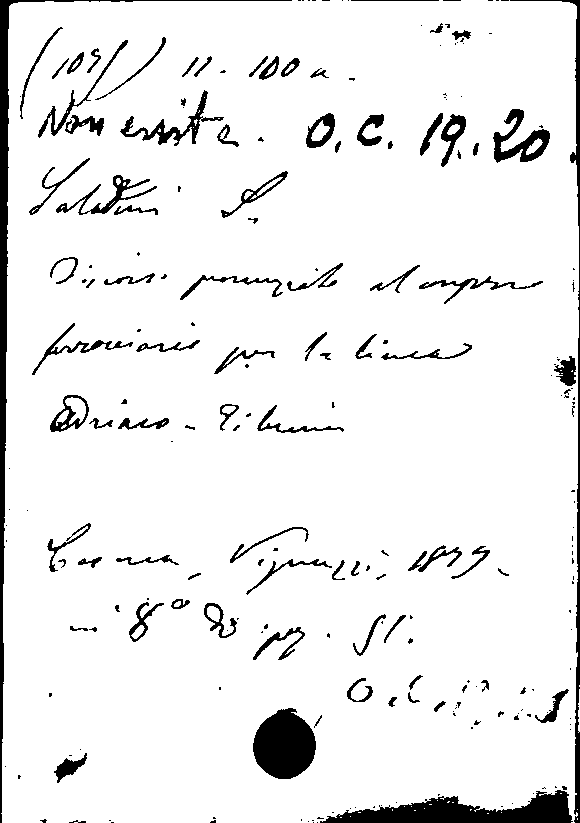 (109/) 11. 100 a.
Non esiste. O.C. 19.20.
Saladini S.
Discorso pronunziato al congresso
ferroviario per la linea
Adriaco-Tiberina
Cesena, Vignuzzi, 1899.
in 8° di pag. 51.
O.C.